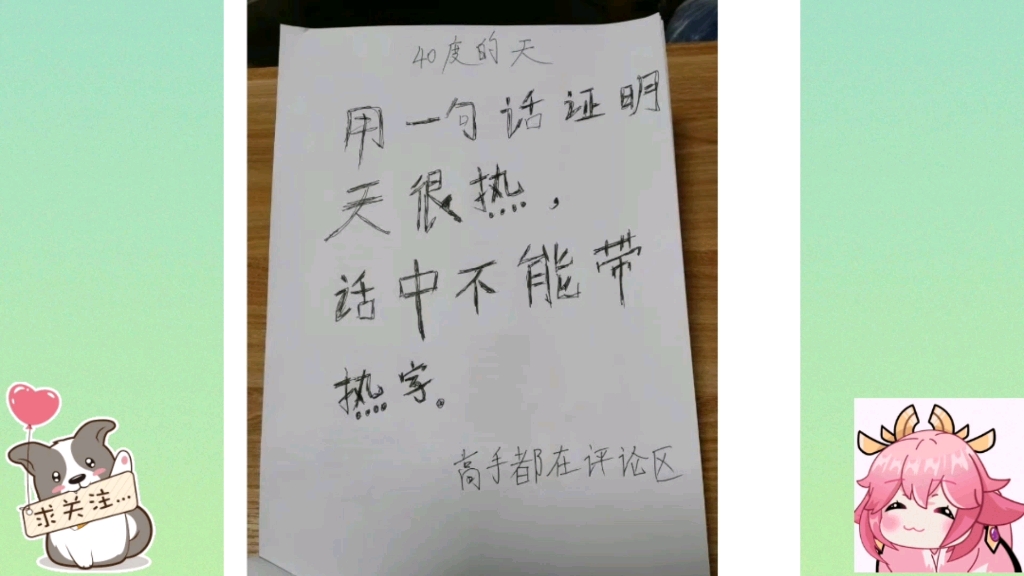 40度的天
用一句话证明
天很热，
话中不能带
热字。
高手都在评论区
求关注...